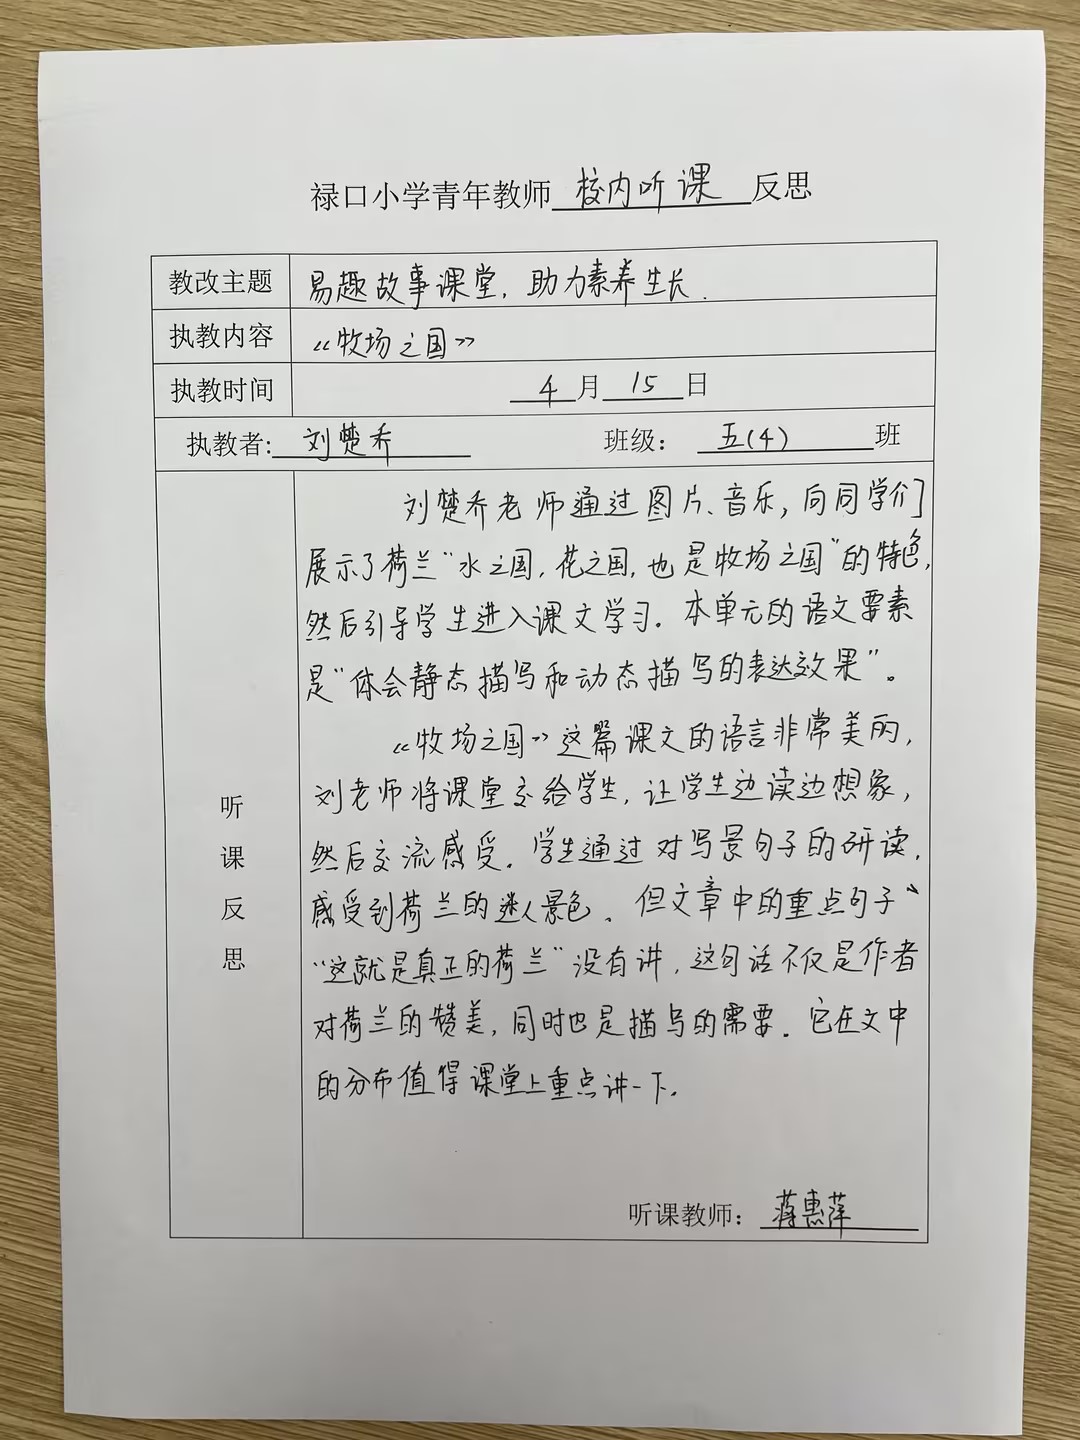 禄口小学青年教师 校内听课 反思
教改主题 易趣故事课堂，助力素养生长.
执教内容 《牧场之国》
执教时间 4月15日
执教者: 刘楚乔 班级： 五(4) 班
刘楚乔老师通过图片、音乐，向同学们
展示了荷兰“水之国，花之国，也是牧场之国”的特色，
然后引导学生进入课文学习．本单元的语文要素
是“体会静态描写和动态描写的表达效果”。
《牧场之国》这篇课文的语言非常美丽，
刘老师将课堂交给学生，让学生边读边想象，
然后交流感受．学生通过对写景句子的研读，
感受到荷兰的迷人景色．但文章中的重点句子
“这就是真正的荷兰”没有讲，这句话不仅是作者
对荷兰的赞美，同时也是描写的需要．它在文中
的分布值得课堂上重点讲一下．
听
课
反
思
听课教师： 蒋惠萍